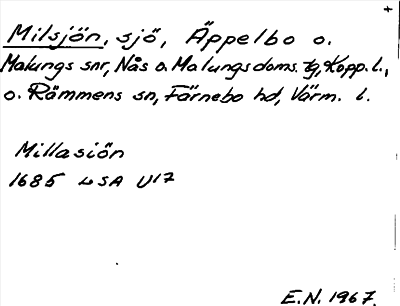 Milsjön, sjö, Äppelbo o.
Malungs snr, Nås o. Malungs doms. tg, Kopp. l.,
o. Rämmens sn, Färnebo hd, Värm. l.
Millasiön
1685 LSA U17
E.N. 1967.